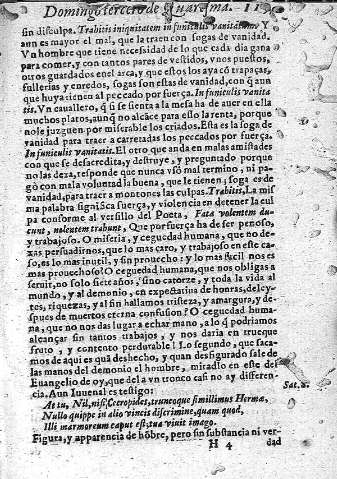 Domingo tercero de Quaresma. 11
sin disculpa. Trahitis iniquitatem in funiculis vanitatis. Y
aun es mayor el mal, que la traen con sogas de vanidad.
Vn hombre que tiene necessidad de lo que cada dia gana
para comer, y con tantos pares de vestidos, vnos puestos,
otros guardados en el arca, y que estos los aya cõ trapaças,
fullerias y enredos, sogas son estas de vanidad, con q̃ aun
que huya tienen al peccado por fuerça. In funiculis vanita
tis. Vn cauallero, q̃ si se sienta a la mesa ha de auer en ella
muchos platos, aunq̃ no alcãce para ello la renta, porque
no le juzguen por miserable los criados. Esta es la soga de
vanidad para traer a carretadas los peccados por fuerça.
In funiculis vanitatis. El otro que anda en malas amistades
con que se desacredita, y destruye, y preguntado porque
no las dexa, responde que nunca vsó mal termino, ni pa-
gó con mala voluntad la buena, que le tienen; soga es de
vanidad, para traer a montones las culpas. Trahitis, La mis
ma palabra significa fuerça, y violencia en detener la cul
pa conforme al versillo del Poeta, Fata volentem du-
cunt, nolentem trahunt, Que por fuerça ha de ser penoso,
y trabajoso. O miseria, y ceguedad humana, que no de-
xas persuadirnos, que lo mas caro, y trabajoso en este ca-
so, es lo mas inutil, y sin prouecho: y lo mas facil nos es
mas prouechoso? O ceguedad humana, que nos obligas a
seruir, no solo siete años, sino catorze, y toda la vida al
mundo, y al demonio, en expectatiua de honras, deley-
tes, riquezas, y al fin hallamos tristeza, y amargura, y de-
spues de muertos eterna confusion? O ceguedad huma-
na, que no nos das lugar a echar mano, a lo q̃ podriamos
alcançar sin tantos trabajos, y nos daria en trueque
fruto, y contento perdurable! Lo segundo, que saca-
mos de aqui es quã deshecho, y quan desfigurado sale de
las manos del demonio el hombre, miradlo en este del
Euangelio de oy, que del a vn tronco casi no ay differen-
cia. Aun Iuuenal es testigo: Sat. 8.
At tu, Nil, nisi Cecropides, truncoque simillimus Hermæ,
Nullo quippe in alio vincis discrimine, quam quod,
Illi marmoreum caput est, tua viuit imago.
Figura, y apparencia de hõbre, pero sin substancia ni ver-
H 4 dad